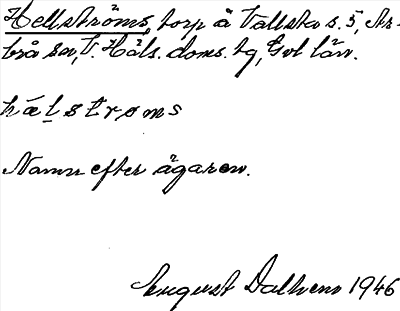 Hellströms, torp å Vallsta s. 5, Ar-
brå sn, V. Häls. doms. tg, Gvl län.
hælstrøms
Namn efter ägaren.
August Dalhem 1946